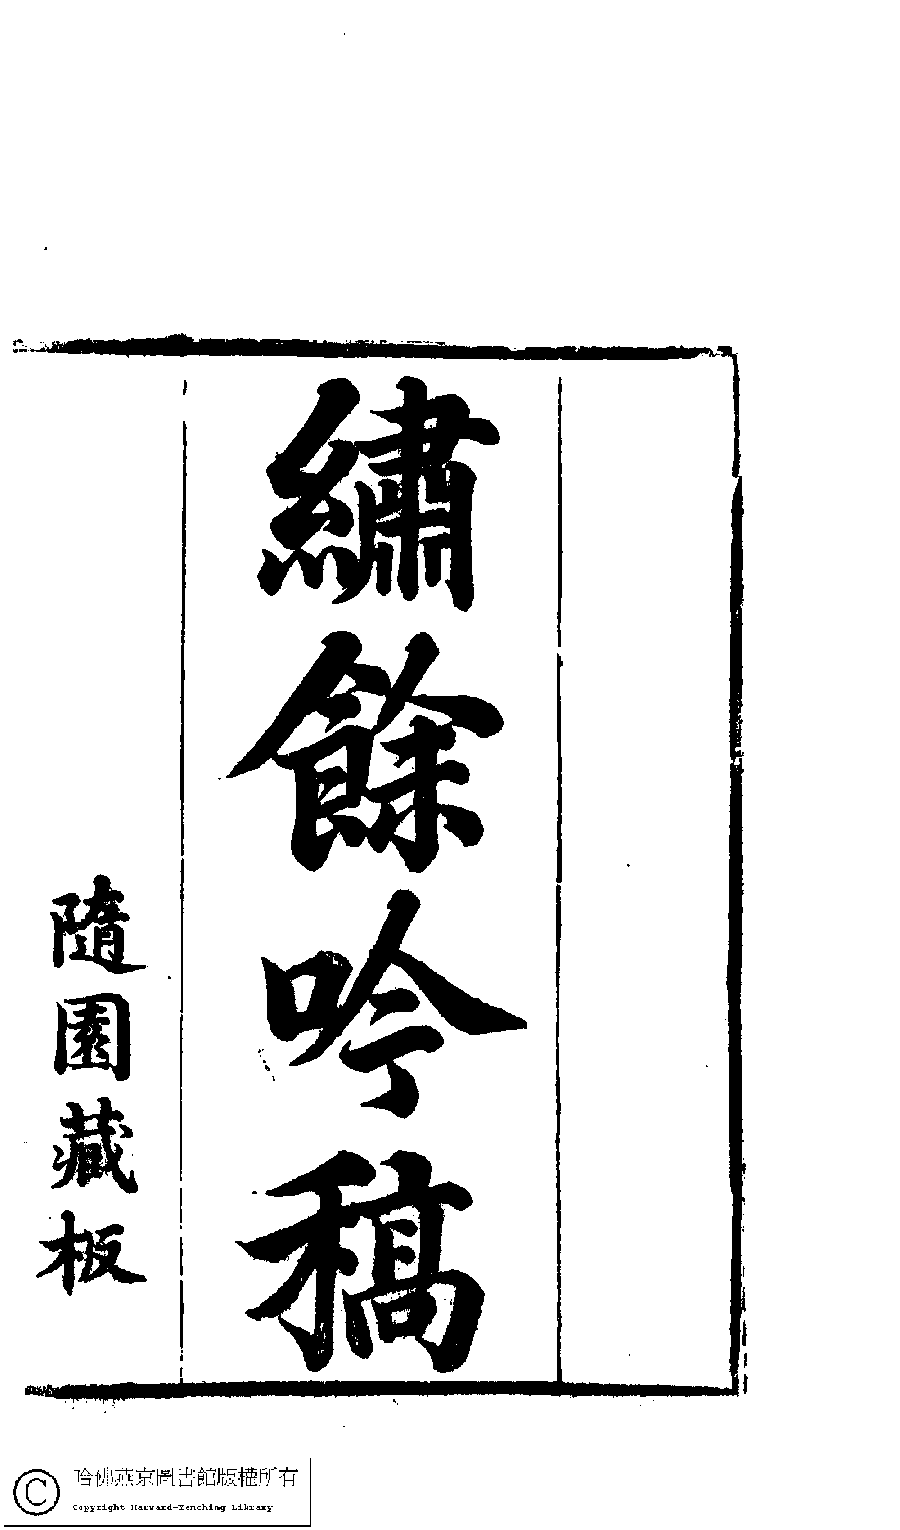 繡餘吟稿
隨園藏板
哈佛燕京圖書館版權所有
Copyright Harvard-Yenching Library